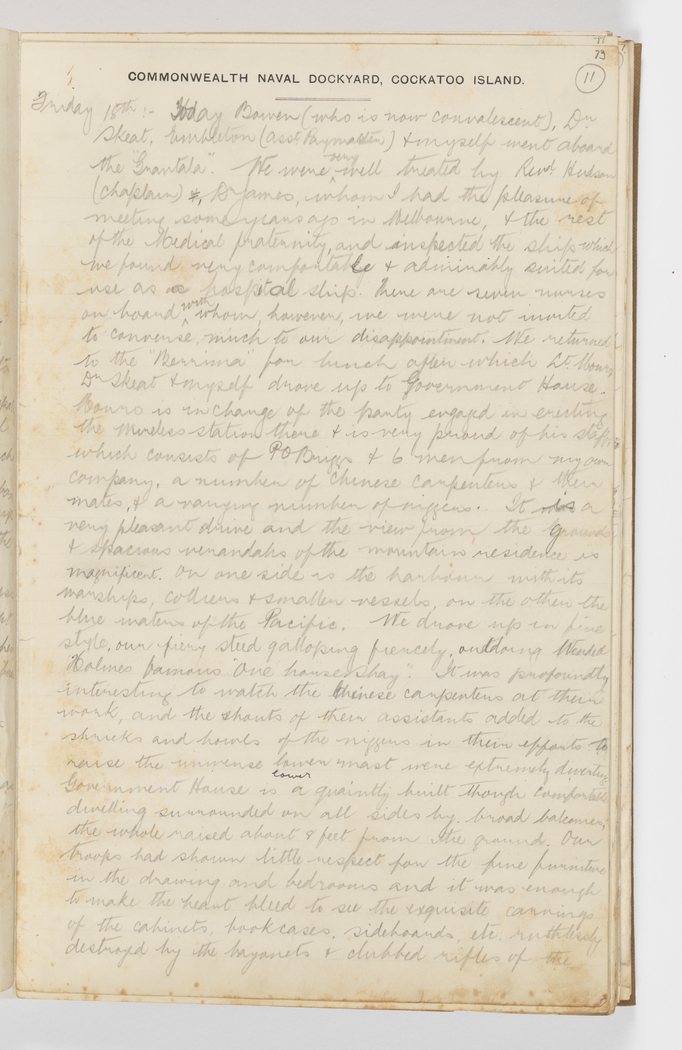 73
11
COMMONWEALTH NAVAL DOCKYARD, COCKATOO ISLAND.
Friday 18th :- Today Bowen (who is now convalescent), Dr
Skeat, Embleton (asst Paymaster) & myself went aboard
the "Grantala". We were very well treated by Revd. Hudson
(chaplain) &, Dr James, whom I had the pleasure of
meeting some years ago in Melbourne, & the rest
of the Medical fraternity, and inspected the ship which
we found very comfortable & admirably suited for
use as a hospital ship. There are seven nurses
on board with whom, however, we were not invited
to converse, much to our disappointment. We returned
to the "Berrima" for lunch after which Lt. Monro
Dr Skeat & myself drove up to Government House.
Monro is in charge of the party engaged in erecting
the wireless station there & is very proud of his staff
which consists of P.O Briggs & 6 men from my own
company, a number of Chinese carpenters & their
mates, & a varying number of niggers. It is a
very pleasant drive and the view from the grounds
& spacious verandahs of the mountain residence is
magnificent. On one side is the harbour with its
warships, colliers & smaller vessels, on the other the
blue waters of the Pacific. We drove up in fine
style, our fiery steed galloping fiercely, outdoing Wendell
Holmes famous "One horse Shay". It was profoundly
interesting to watch the Chinese carpenters at their
work, and the shouts of their assistants added to the
shrieks and howls of the niggers in their efforts to
raise the immense lower mast were extremely diverting
lower
Government House is a quaintly built though comfortable
dwelling surrounded on all sides by broad balconies,
the whole raised about 8 feet from the ground. Our
troops had shown little respect for the fine furniture
in the drawing and bedrooms and it was enough
to make the heart bleed to see the exquisite carvings
of the cabinets, bookcases, sideboards, etc. ruthlessly
destroyed by the bayonets & clubbed rifles of the